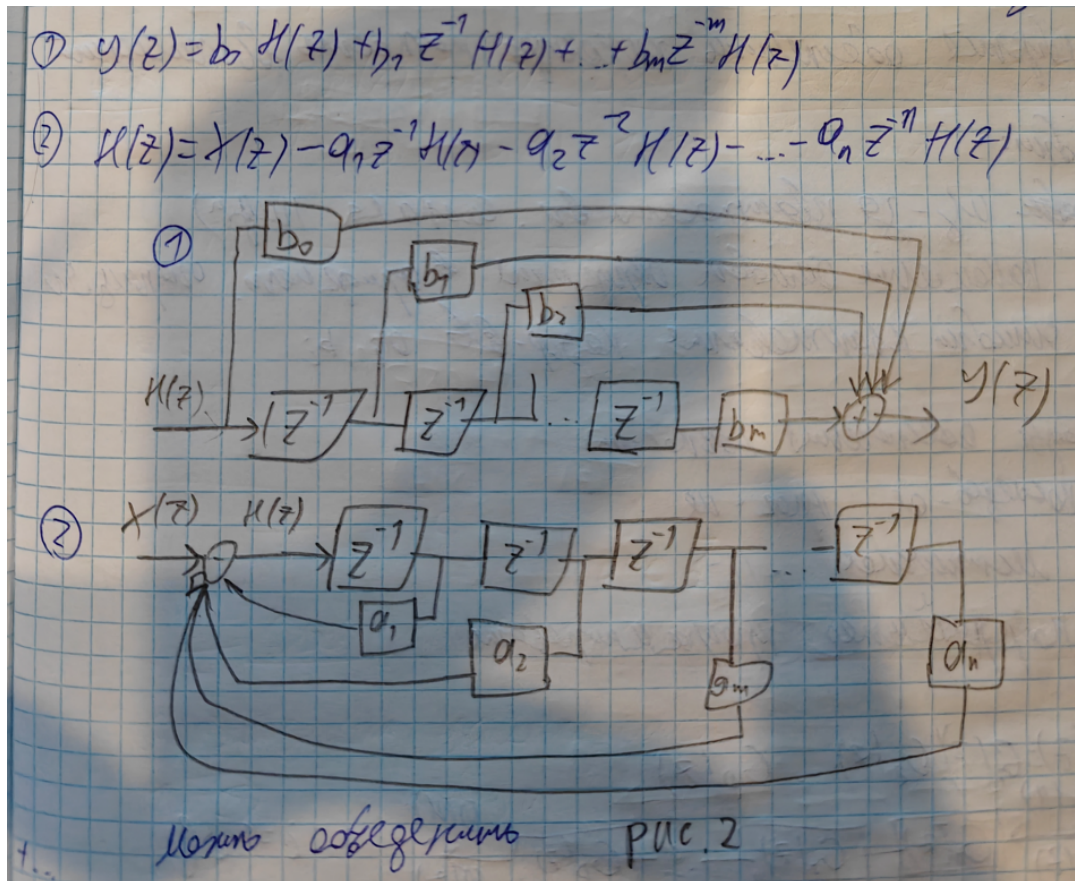 ① y(z)=b₀ H(z)+b₁ z⁻¹ H(z)+...+bₘz⁻ᵐH(z)
② H(z)=X(z)-a₁z⁻¹H(z)-a₂z⁻²H(z)-...-aₙz⁻ⁿH(z)
①
b₀
b₁
b₂
H(z) z⁻¹ z⁻¹ ... z⁻¹ bₘ + y(z)
② X(z) - H(z) z⁻¹ z⁻¹ z⁻¹ ... z⁻¹
a₁ a₂ aₘ aₙ
можно объеденить рис. 2